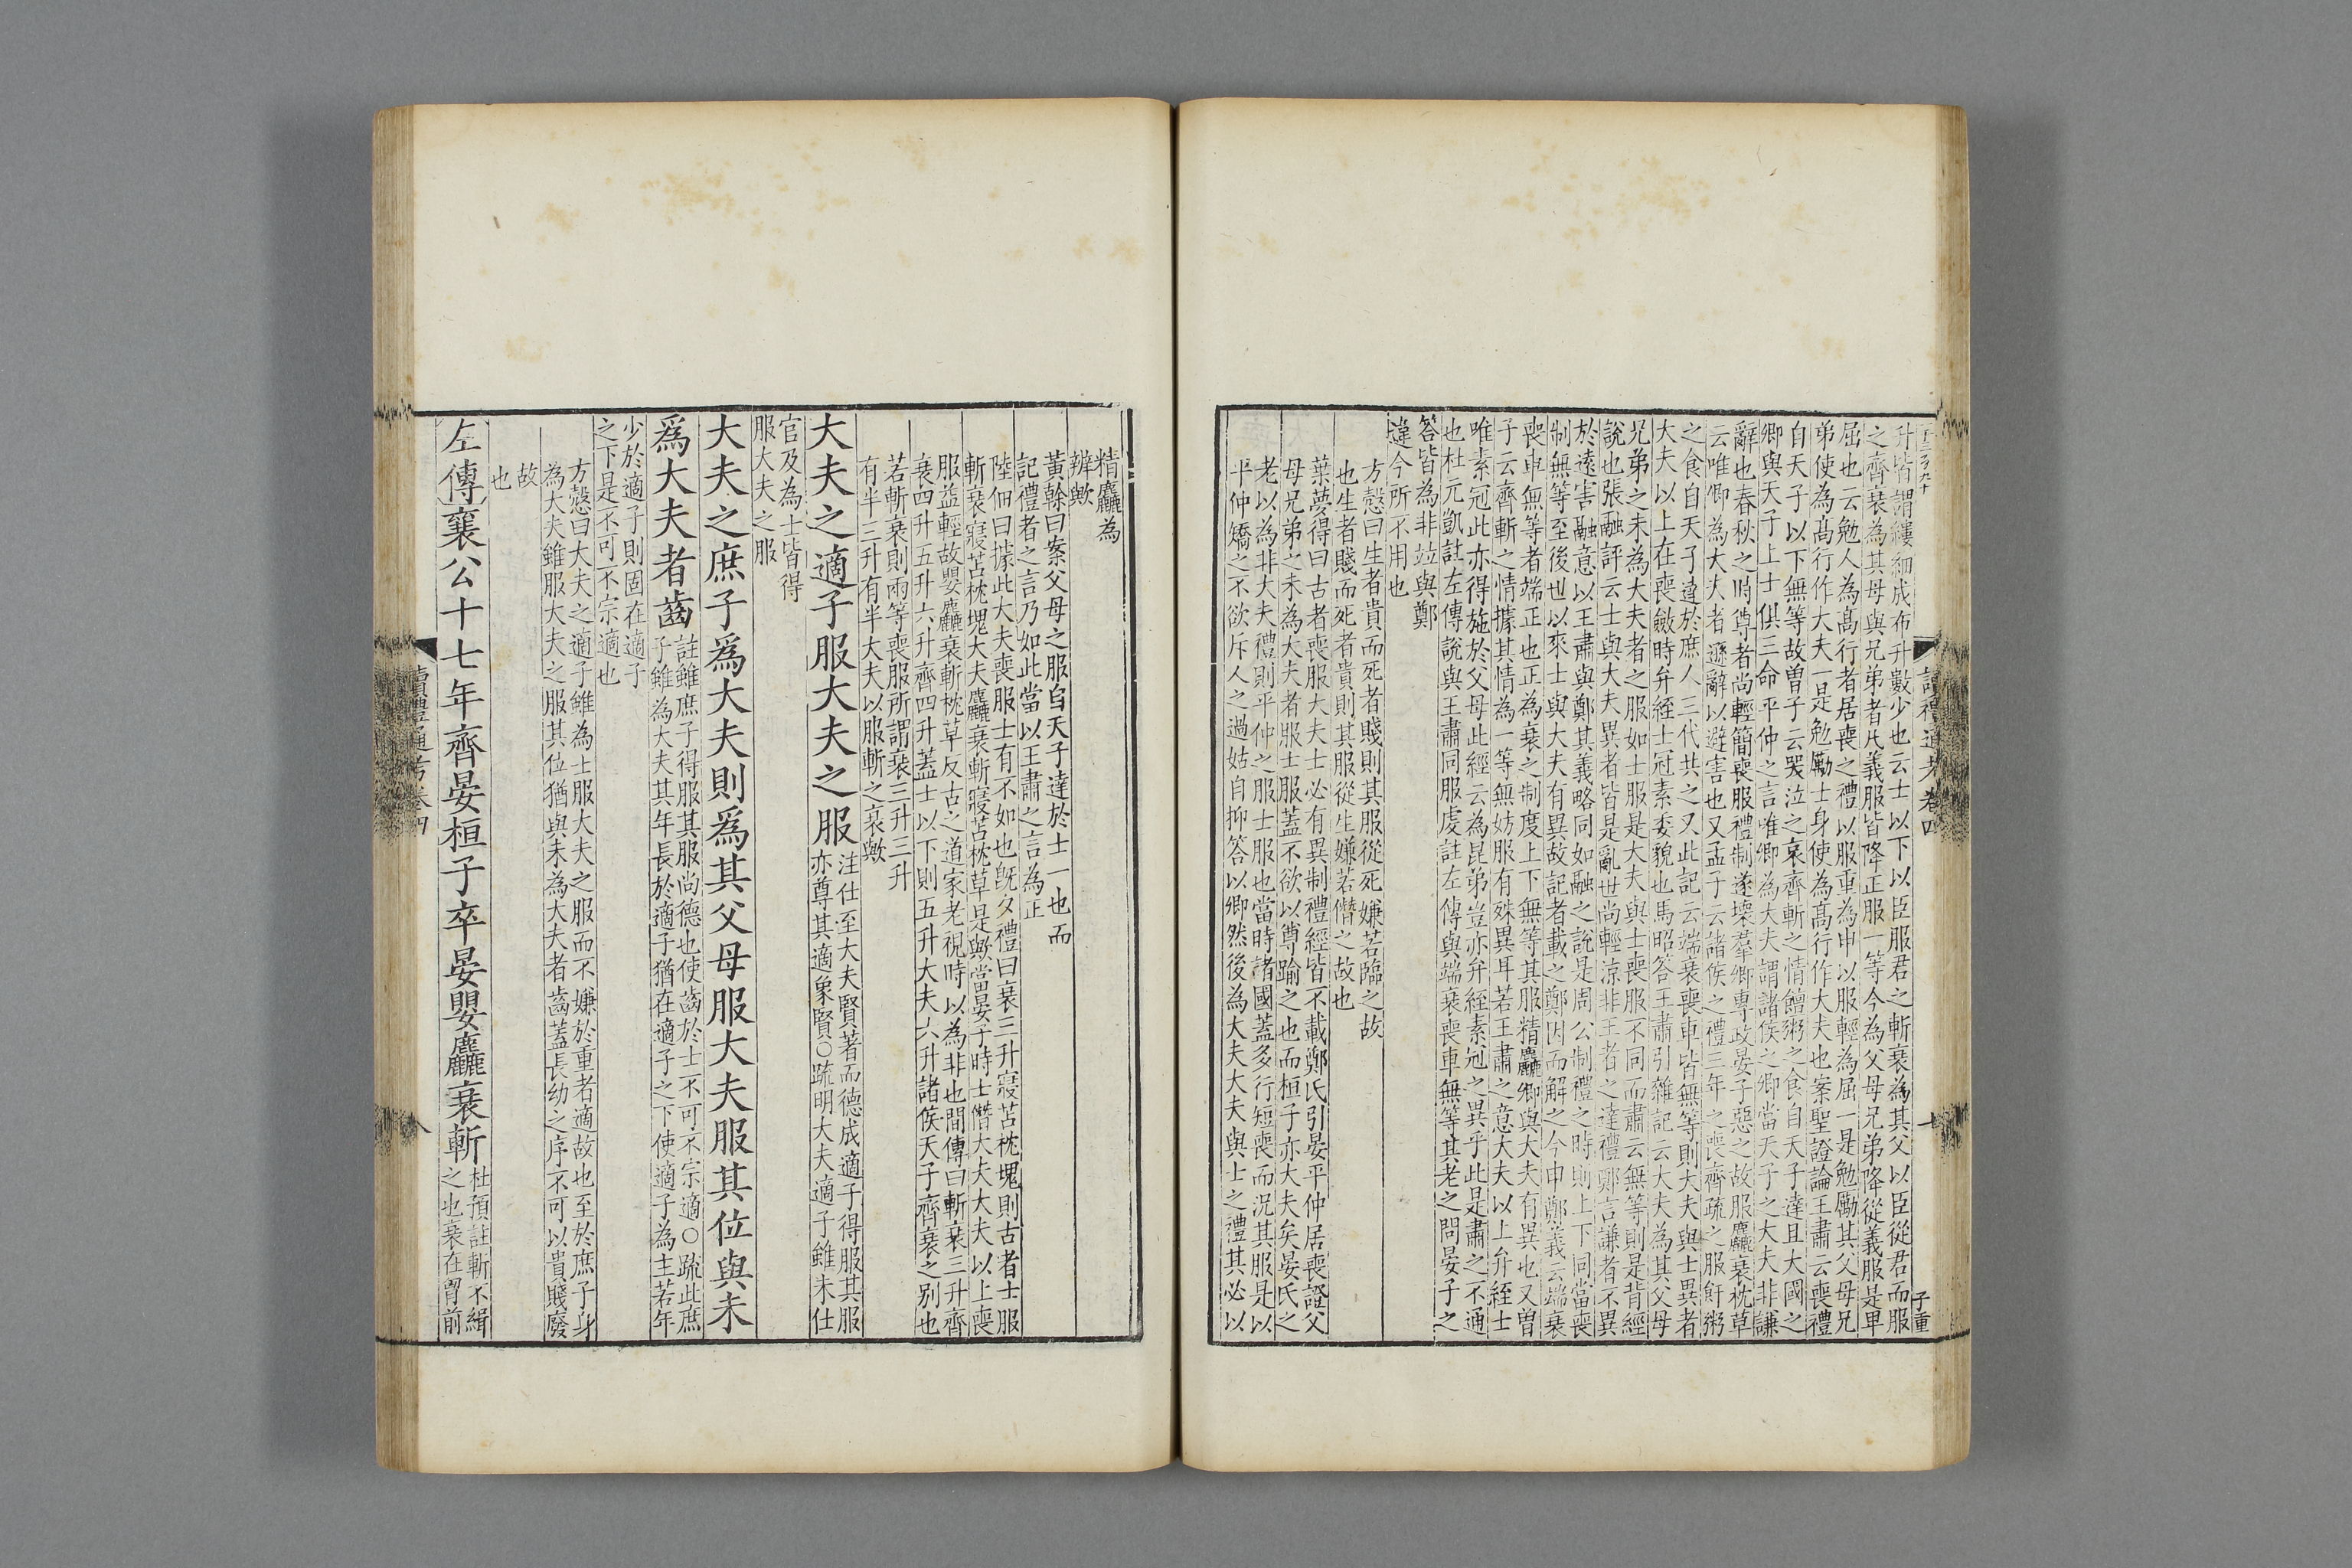 升皆謂縷細成布升數少也云士以下以臣服君之斬衰為其父以臣從君而服
之齊衰為其母與兄弟者以義服皆降正服一等今為父母兄弟降從義服是卑
屈也云勉人為髙行者居喪之禮以服重為申以服輕為屈一是勉勵其父母兄
弟使為髙行作大夫一是勉勵士身使為髙行作大夫也案聖證論王肅云喪禮
自天子以下無等故曾子云哭泣之哀齊斬之情饘粥之食自天子達且大國之
卿與天子上士俱三命平仲之言唯卿為大夫謂諸侯之卿當天子之大夫非謙
辭也春秋之時尊者尚輕簡喪服禮制遂壞羣卿專政晏子惡之故服麤衰枕草
云唯卿為大夫者遜辭以避害也又孟子云諸侯之禮三年之喪齊疏之服飦粥
之食自天子達於庶人三代共之又此記云端衰喪車皆無等則大夫與士異者
大夫以上在喪斂時弁絰士冠素委貌也馬昭答王肅引雜記云大夫為其父母
兄弟之未為大夫者之服如士服是大夫與士喪服不同而肅云無等則是背經
說也張融評云士與大夫異者皆是亂世尚輕涼非王者之達禮鄭言謙者不異
於遠害融意以王肅與鄭其義略同如融之說是周公制禮之時則上下同當喪
制無等至後世以來士與大夫有異故記者載之鄭因而解之今申鄭義云端衰
喪車無等者端正也正為衰之制度上下無等其服精麤卿與大夫有異也又曾
子云齊斬之情據其情為一等無妨服有殊異耳若王肅之意大夫以上弁絰士
唯素冠此亦得施於父母此經云為昆弟豈亦弁絰素冠之異乎此是肅之不通
也杜元凱註左傳說與王肅同服虔註左傳與端衰喪車無等其老之問晏子之
答皆為非竝與鄭
違今所不用也
方慤曰生者貴而死者賤則其服從死嫌若臨之故
也生者賤而死者貴則其服從生嫌若僭之故也
葉夢得曰古者喪服大夫士必有異制禮經皆不載鄭氏引晏平仲居喪證父
母兄弟之未為大夫者服士服蓋不欲以尊踰之也而桓子亦大夫矣晏氏之
老以為非大夫禮則平仲之服士服也當時諸國蓋多行短喪而況其服是以
平仲矯之不欲斥人之過姑自抑答以卿然後為大夫大夫與士之禮其必以
讀禮通考卷四
子重
精麤為
辨歟
黃榦曰案父母之服自天子達於士一也而
記禮者之言乃如此當以王肅之言為正
陸佃曰據此大夫喪服士有不如也旣夕禮曰衰三升寢苫枕塊則古者士服
斬衰寢苫枕塊大夫麤衰斬寢苫枕草是歟當晏子時士僭大夫大夫以上喪
服益輕故嬰麤衰斬枕草反古之道家老視時以為非也間傳曰斬衰三升齊
衰四升五升六升齊四升蓋士以下則五升大夫六升諸侯天子齊衰之別也
若斬衰則兩等喪服所謂衰三升三升
有半三升有半大夫以服斬之衰歟
大夫之適子服大夫之服注仕至大夫賢著而德成適子得服其服
亦尊其適象賢○疏明大夫適子雖未仕
官及為士皆得
服大夫之服
大夫之庶子爲大夫則爲其父母服大夫服其位與未
爲大夫者齒註雖庶子得服其服尚德也使齒於士不可不宗適○疏此庶
子雖為大夫其年長於適子猶在適子之下使適子為主若年
少於適子則固在適子
之下是不可不宗適也
方慤曰大夫之適子雖為士服大夫之服而不嫌於重者適故也至於庶子身
為大夫雖服大夫之服其位猶與未為大夫者齒蓋長幼之序不可以貴賤廢
故
也
左傳襄公十七年齊晏桓子卒晏嬰麤衰斬杜預註斬不緝
之也衰在胷前
讀禮通考卷四